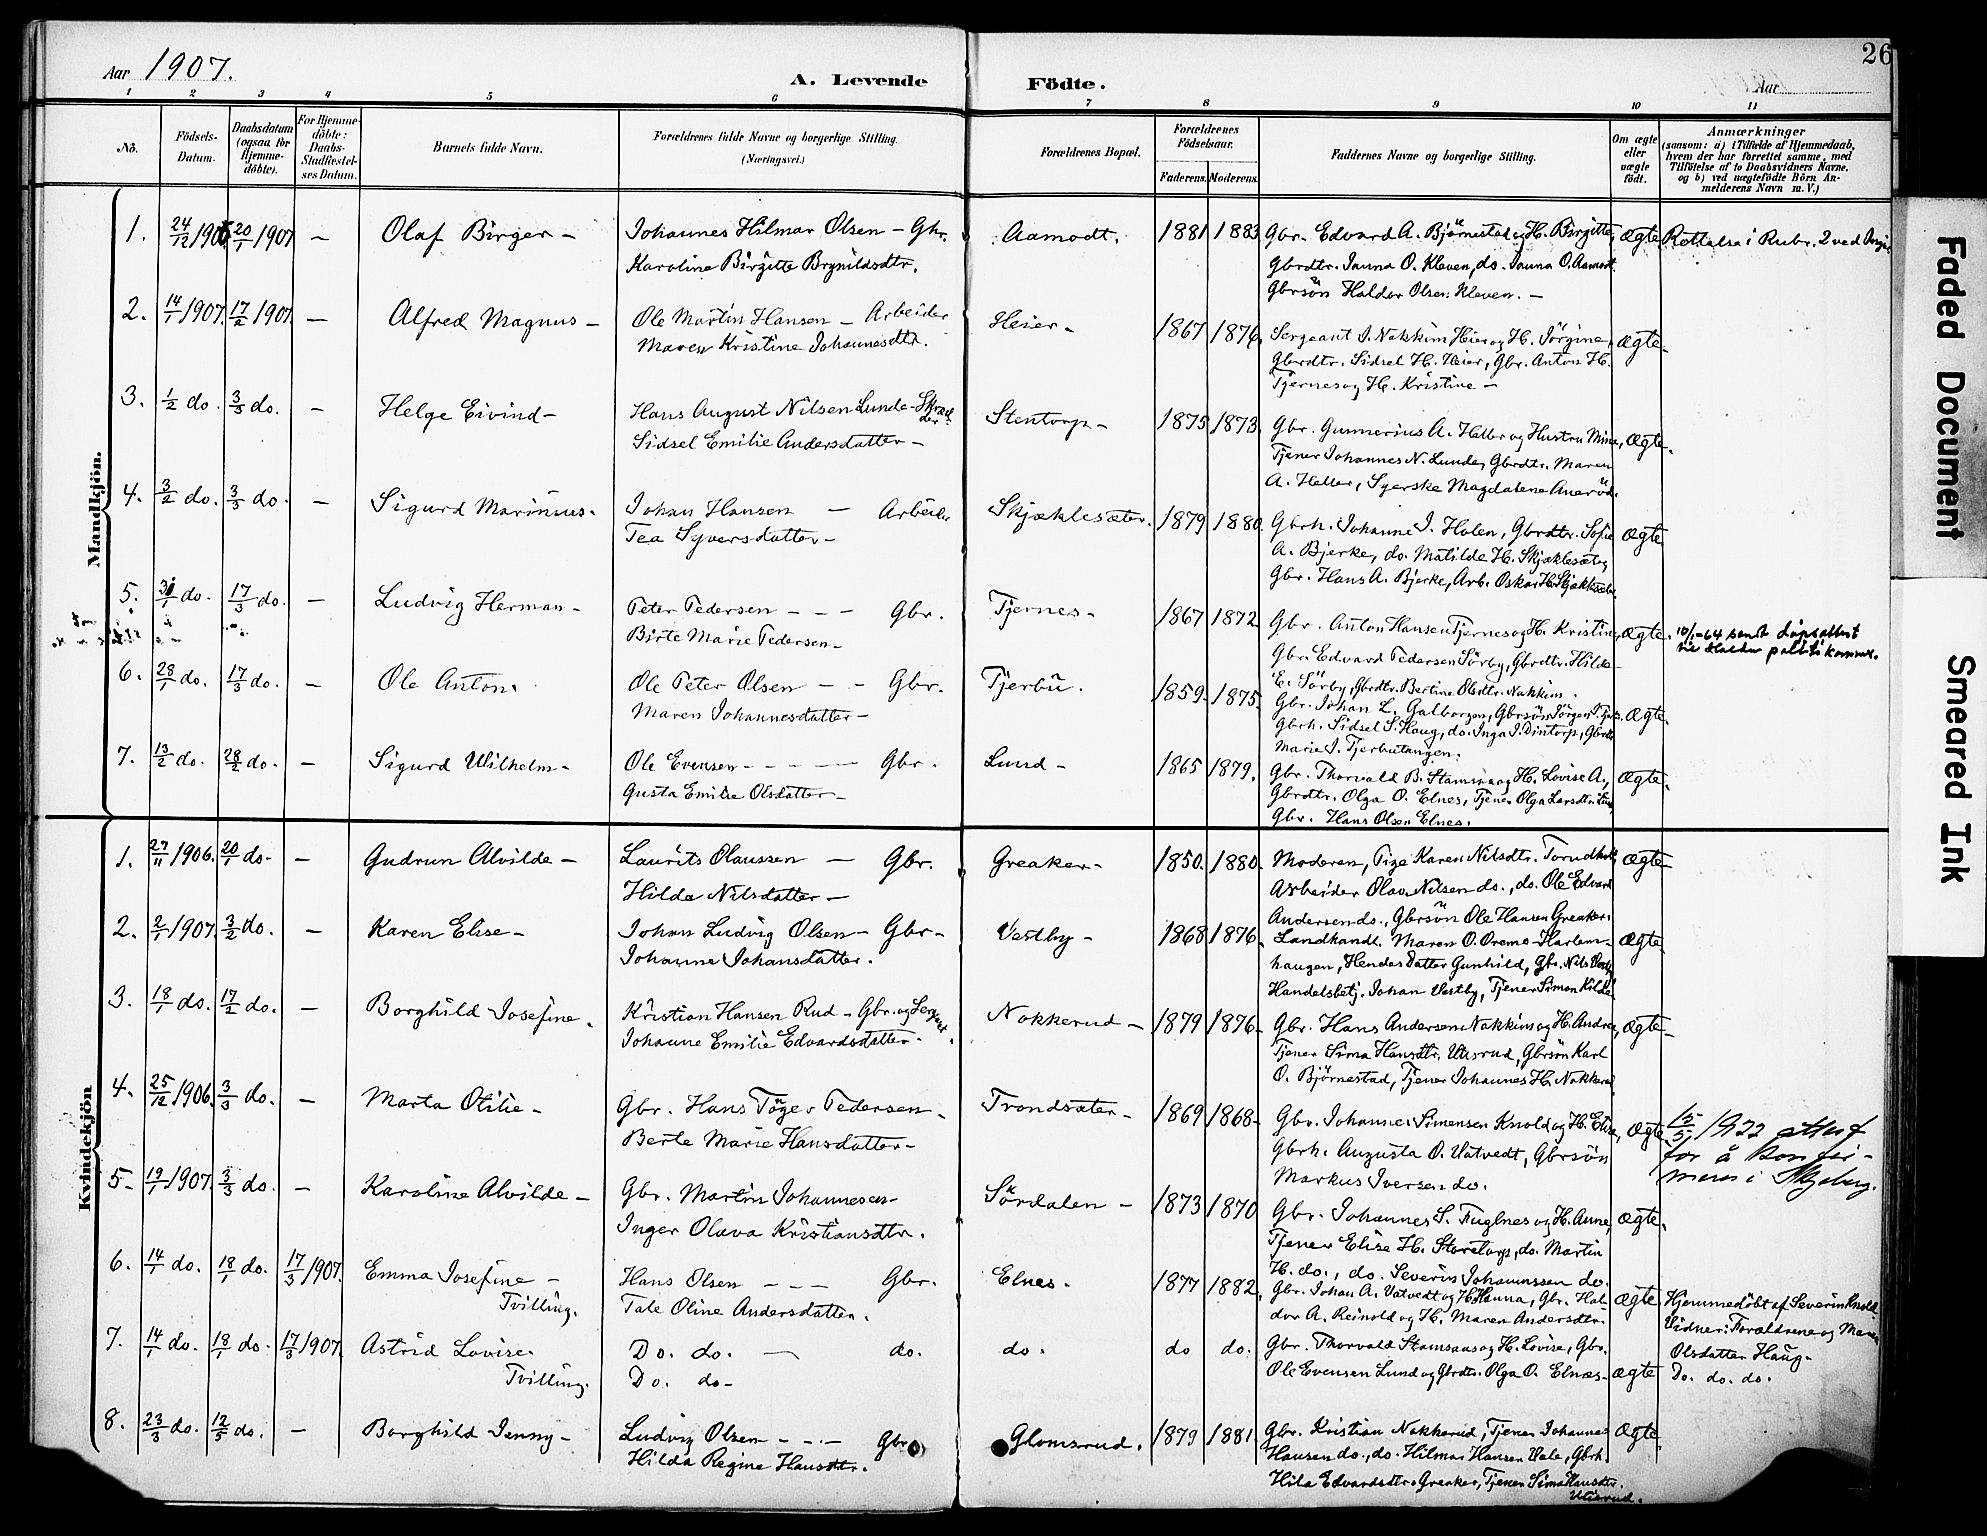 Aar 1907.
A. Levende Födte.
Aar
26
1 2 3 4 5 6 7 8 9 10 11
No.
Födsels-Datum.
Daabsdatum (ogsaa for Hjemme-döbte).
For Hjemme-döbte: Daabs-Stadfæstel-ses Datum.
Barnets fulde Navn.
Forældrenes fulde Navne og borgerlige Stilling. (Næringsvei.)
Forældrenes Bopæl.
Forældrenes Födselsaar.
Faderens. Moderens.
Faddernes Navne og borgerlige Stilling.
Om ægte eller uægte födt.
Anmærkninger
(saasom: a) i Tilfælde af Hjemmedaab, hvem der har forrettet samme, med Tilföielse af to Daabsvidners Navne. og b) ved uægtefödte Börn Anmelderens Navn m. V.)
Mandkjön.
1. 24/12 1906 20/1 1907 – Olaf Birger – Johannes Hilmar Olsen – Gbr. Aamodt. 1881 1883 Gbr. Edvard A. Björnestad og H. Birgitte, ægte Rettelse i Rubr. 2 ved
Karoline Birgitte Brynildsdtr. Gbrdtr. Janna O. Kleven, do. Janna O. Aamodt
Gbrsön Haldor Olsen Kleven. –
2. 14/1 1907. 17/2 1907. – Alfred Magnus – Ole Martin Hansen – Arbeider Heier – 1867 1876, Sergeant J. Nakkim Heier og H. Jörgine, ægte.
Maren Kristine Johannesdtr. Gbrdtr. Sidsel H. Heier, Gbr. Anton H.
Tjernes og H. Kristine –
3. 1/2 do. 3/3 do. – Helge Eivind – Hans August Nilsen Lunde – Skræd-der Stentorp – 1875 1873, Gbr. Gunnerius A. Heller og Hustru Mina, ægte.
Sidsel Emilie Andersdatter – Tjener Johannes N. Lunde, Gbrdtr. Maren
A. Heller, Syerske Magdalene Aneröd.
4. 3/2 do. 3/3 do. – Sigurd Marinius. Johan Hansen – Arbeider Skjæklesæter. 1879 1880. Gbrh. Johanne J. Holen, Gbrdtr. Sofie ægte
Tea Syversdatter – A. Bjerke, do. Matilde H. Skjæklesæter,
Gbr. Hans A. Bjerke, Arb. Oskar H. Skjæklesæter.
5. 31/1 do. 17/3 do. – Ludvig Herman – Peter Pedersen – – – Gbr. Tjernes – 1867 1872 Gbr. Anton Hansen Tjernes og H. Kristine, ægte. 10/1-64 sendt dåpsattest
Birte Marie Pedersen – Gbr. Edvard Pedersen Sörby, Gbrdtr. Hilde til Halden politikammer.
E. Sörby, Gbrdtr. Bertine Olsdtr. Nakkim.
6. 28/1 do. 17/3 do. – Ole Anton. Ole Peter Olsen – – Gbr. Tjerbu. 1859. 1875. Gbr. Johan L. Galborgen, Gbrsön Jörgen ægte.
Maren Johannesdatter – Gbrh. Sidsel S. Haug, do. Inga J. Dintorp, Gbrdtr.
Marie J. Tjerbutangen.
7. 13/2 do. 28/2 do. – Sigurd Wilhelm – Ole Evensen – – – – Gbr. Lund – 1865 1879. Gbr. Thorvald B. Stamsaas og H. Lovise A., ægte.
Gusta Emilie Olsdatter – Gbrdtr. Olga O. Elnes, Tjener Olga Larsdtr.
Gbr. Hans Olsen Elnes.
Kvindekjön
1. 27/11 1906. 20/1 do – – Gudrun Alvilde – Laurits Olaussen – Gbr. Greaker – 1850. 1880. Moderen, Pige Karen Nilsdtr. Torudholt, ægte
Hilda Nilsdatter – Arbeider Olav Nilsen do., do. Ole Edvard
Andersen do., Gbrsön Ole Hansen Greaker.
2. 2/1 1907. 3/2 do. – Karen Elise – Johan Ludvig Olsen – Gbr – Vestby – 1868 1876. Landhandl. Maren O. Oremo Harlem- ægte
Johanne Johansdatter. haugen, Hendes Datter Gunhild, Gbr. Nils Vestby
Handelsbetj. Johan Vestby, Tjener Simon Kilde
3. 18/1 do. 17/2 do. – Borghild Josefine. Kristian Hansen Rud – Gbr. og Sergeant. Nakkerud – 1879 1876 – Gbr. Hans Andersen Nakkim og H. Andrea, ægte –
Johanne Emilie Edvardsdatter – Tjener Sima Hansdtr. Utisrud, Gbrsön Karl
O. Björnestad, Tjener Johannes H. Nakkerud
4. 25/12 1906. 3/3 do. – Marta Otilie – Gbr. Hans Töger Pedersen – Trondsæter – 1869 1868 – Gbr. Johannes Simensen Knold og H. Elise, ægte 15/5 1922 attest
Berte Marie Hansdatter – Gbrh. Augusta O. Vatvedt, Gbrsön for å konfir-
Markus Iversen do. meres i Skjeberg.
5 – 19/1 1907. 3/3 do. – Karoline Alvilde – Gbr. Martin Johannesen – Sördalen – 1873 1870 Gbr. Johannes S. Fuglnes og H. Anne, ægte.
Inger Olava Kristiansdtr. Tjener Elise H. Storetorp, do. Martin
H. do., do. Severin Johannssen do.
6. 14/1 do. 18/1 do. 17/3 1907. Emma Josefine – Hans Olsen – – – Gbr. Elnes. 1877 1882, Gbr. Johan A. Vatvedt og H. Hanna, Gbr. Hal- ægte Hjemmedöbt af Severin Knold
Tvilling. Tale Oline Andersdatter. dor A. Reinold og H. Maren Andersdtr. Vidner: Forældrene og Maren
7. 14/1 do. 18/1 do. 17/3 1907. Astrid Lovise. Do. do. – do. do. do do. Gbr. Thorvald Stamsaas og H. Lovise, Gbr. Olsdatter Haug –
Tvilling. Do. do – Ole Evensen Lund og Gbrdtr. Olga O. Elnæs – ægte Do. do. do.
8. 23/3 do. 12/5 do. – Borghild Jenny – Ludvig Olsen – – – Gbr. Glomsrud. 1879 1881 Gbr. Kristian Nakkerud, Tjener Johannes ægte.
Hilda Regine Hansdtr. Hansen do., do. Hilmar Hansen Vale, Gbrh.
Hilda Edvardsdtr. Greaker, Tjener Sima Hansdtr.
Utisrud.
Faded Document
Smeared Ink